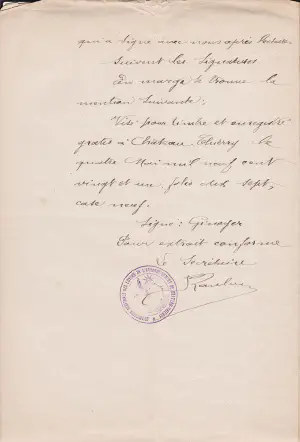 qui a signé avec nous après lecture
Suivent les Signatures
En marge se trouve la
mention suivante :
Visé pour timbre et enregistré
gratis à Château Thierry le
quatre Mai mil neuf cent
vingt et un, folio dix sept,
case neuf.
Signé :
Pour extrait conforme
Le Secrétaire